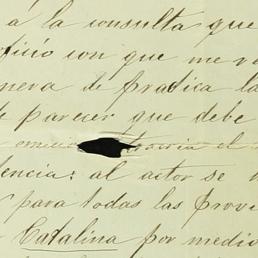 á la consulta que
fino con que me
nera de practica la
de parecer que debe
el
dencia: al actor se
para todas las Provi
Catalina por medio